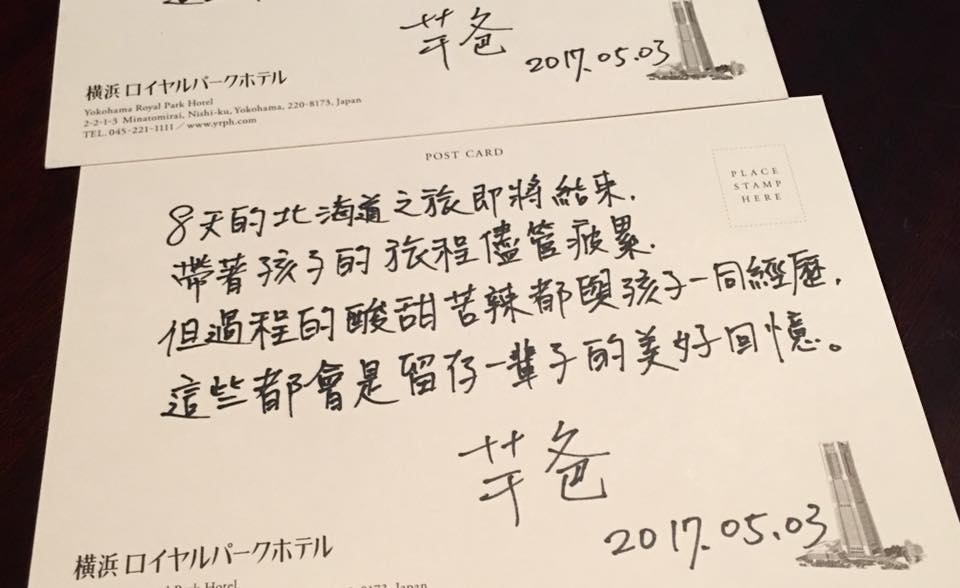 芊爸
2017.05.03
横浜 ロイヤルパークホテル
Yokohama Royal Park Hotel
2-2-1-3 Minatomirai, Nishi-ku, Yokohama, 220-8173, Japan
TEL. 045-221-1111 / www.yrph.com
POST CARD
PLACE
STAMP
HERE
8天的北海道之旅即將結束,
帶著孩子的旅程儘管疲累,
但過程的酸甜苦辣都與孩子一同經歷,
這些都會是留存一輩子的美好回憶。
芊爸
2017.05.03
横浜 ロイヤルパークホテル
Park Hotel
8173, Japan